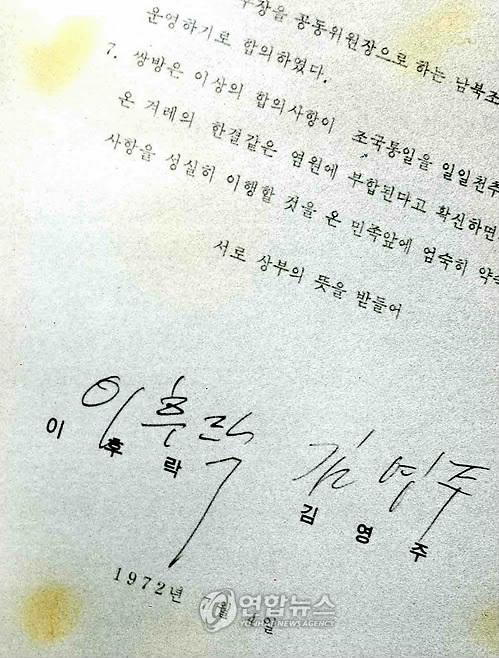 부장을 공동위원장으로 하는 남북조
운영하기로 합의하였다.
7. 쌍방은 이상의 합의사항이 조국통일을 일일천추
온 겨레의 한결같은 염원에 부합된다고 확신하면
사항을 성실히 이행할 것을 온 민족앞에 엄숙히 약속
서로 상부의 뜻을 받들어
이후락 김영주
이 후 락 김 영 주
1972년 월 4일
연합뉴스
YONHAP NEWS AGENCY